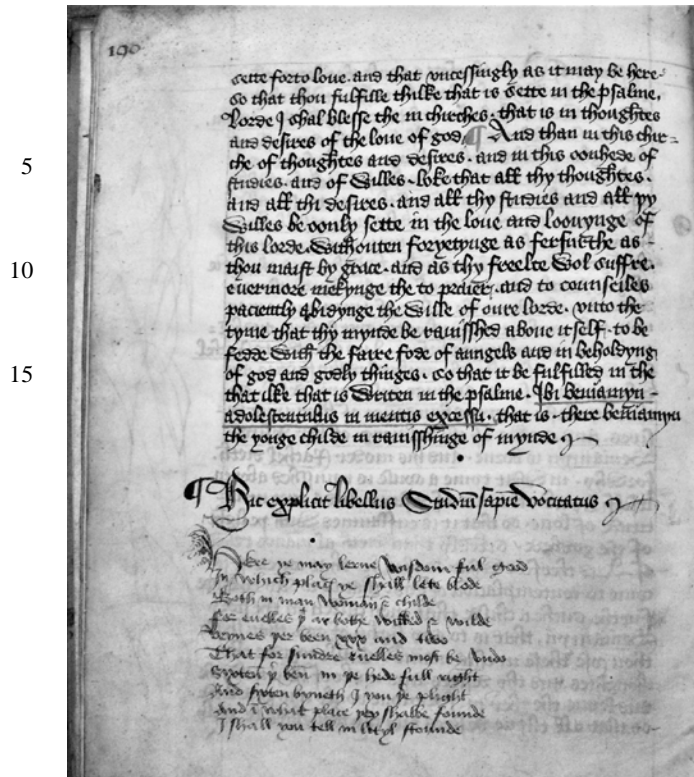 190
5
10
15
sette forto loue. and that vncessingly as it may be here.
so that thou fulfille thilke that is sette in the psalme.
Lorde I shal blesse the in chirches. that is in thoughtes
and desires of the loue of god. ¶ And than in this chir=
che of thoughtes and desires. and in this oonhede of
studies. and of willes. loke that all thy thoughtes.
and all thi desires. and all thy studies and all þy
willes be oonly sette in the loue and loouynge of
this lorde. withouten foryetynge as ferfurthe as
thou maist by grace. and as thy freelte wol suffre.
euermore mekynge the to praier. and to counseiles
paciently abidynge the wille of oure lorde. vnto the
tyme that thy mynde be rauisshed aboue itself. to be
fedde with the faire fode of aungels and in beholdyng
of god and godly thinges. so that it be fulfilled in the
that ilke that is writen in the psalme. Ibi beniamyn
adolescentulus in mentis excessu. that is. there beniamyn
the yonge childe in rauisshinge of mynde
¶ Hic explicit libellus Studiū sapīe vōcitatus
Here ye may lerne wisdom ful good
In which place ye shall lete blode
Both in man woman & childe
For euelles þͭ ar bothe wilked & wilde
Veines þer been xxx and two
That for sindre euelles most be vndo
Sxten þͭ ben in þe hede full right
And sxten byneth I you þe plight
And ī what place þey shalbe founde
I shall you tell in lityl stounde